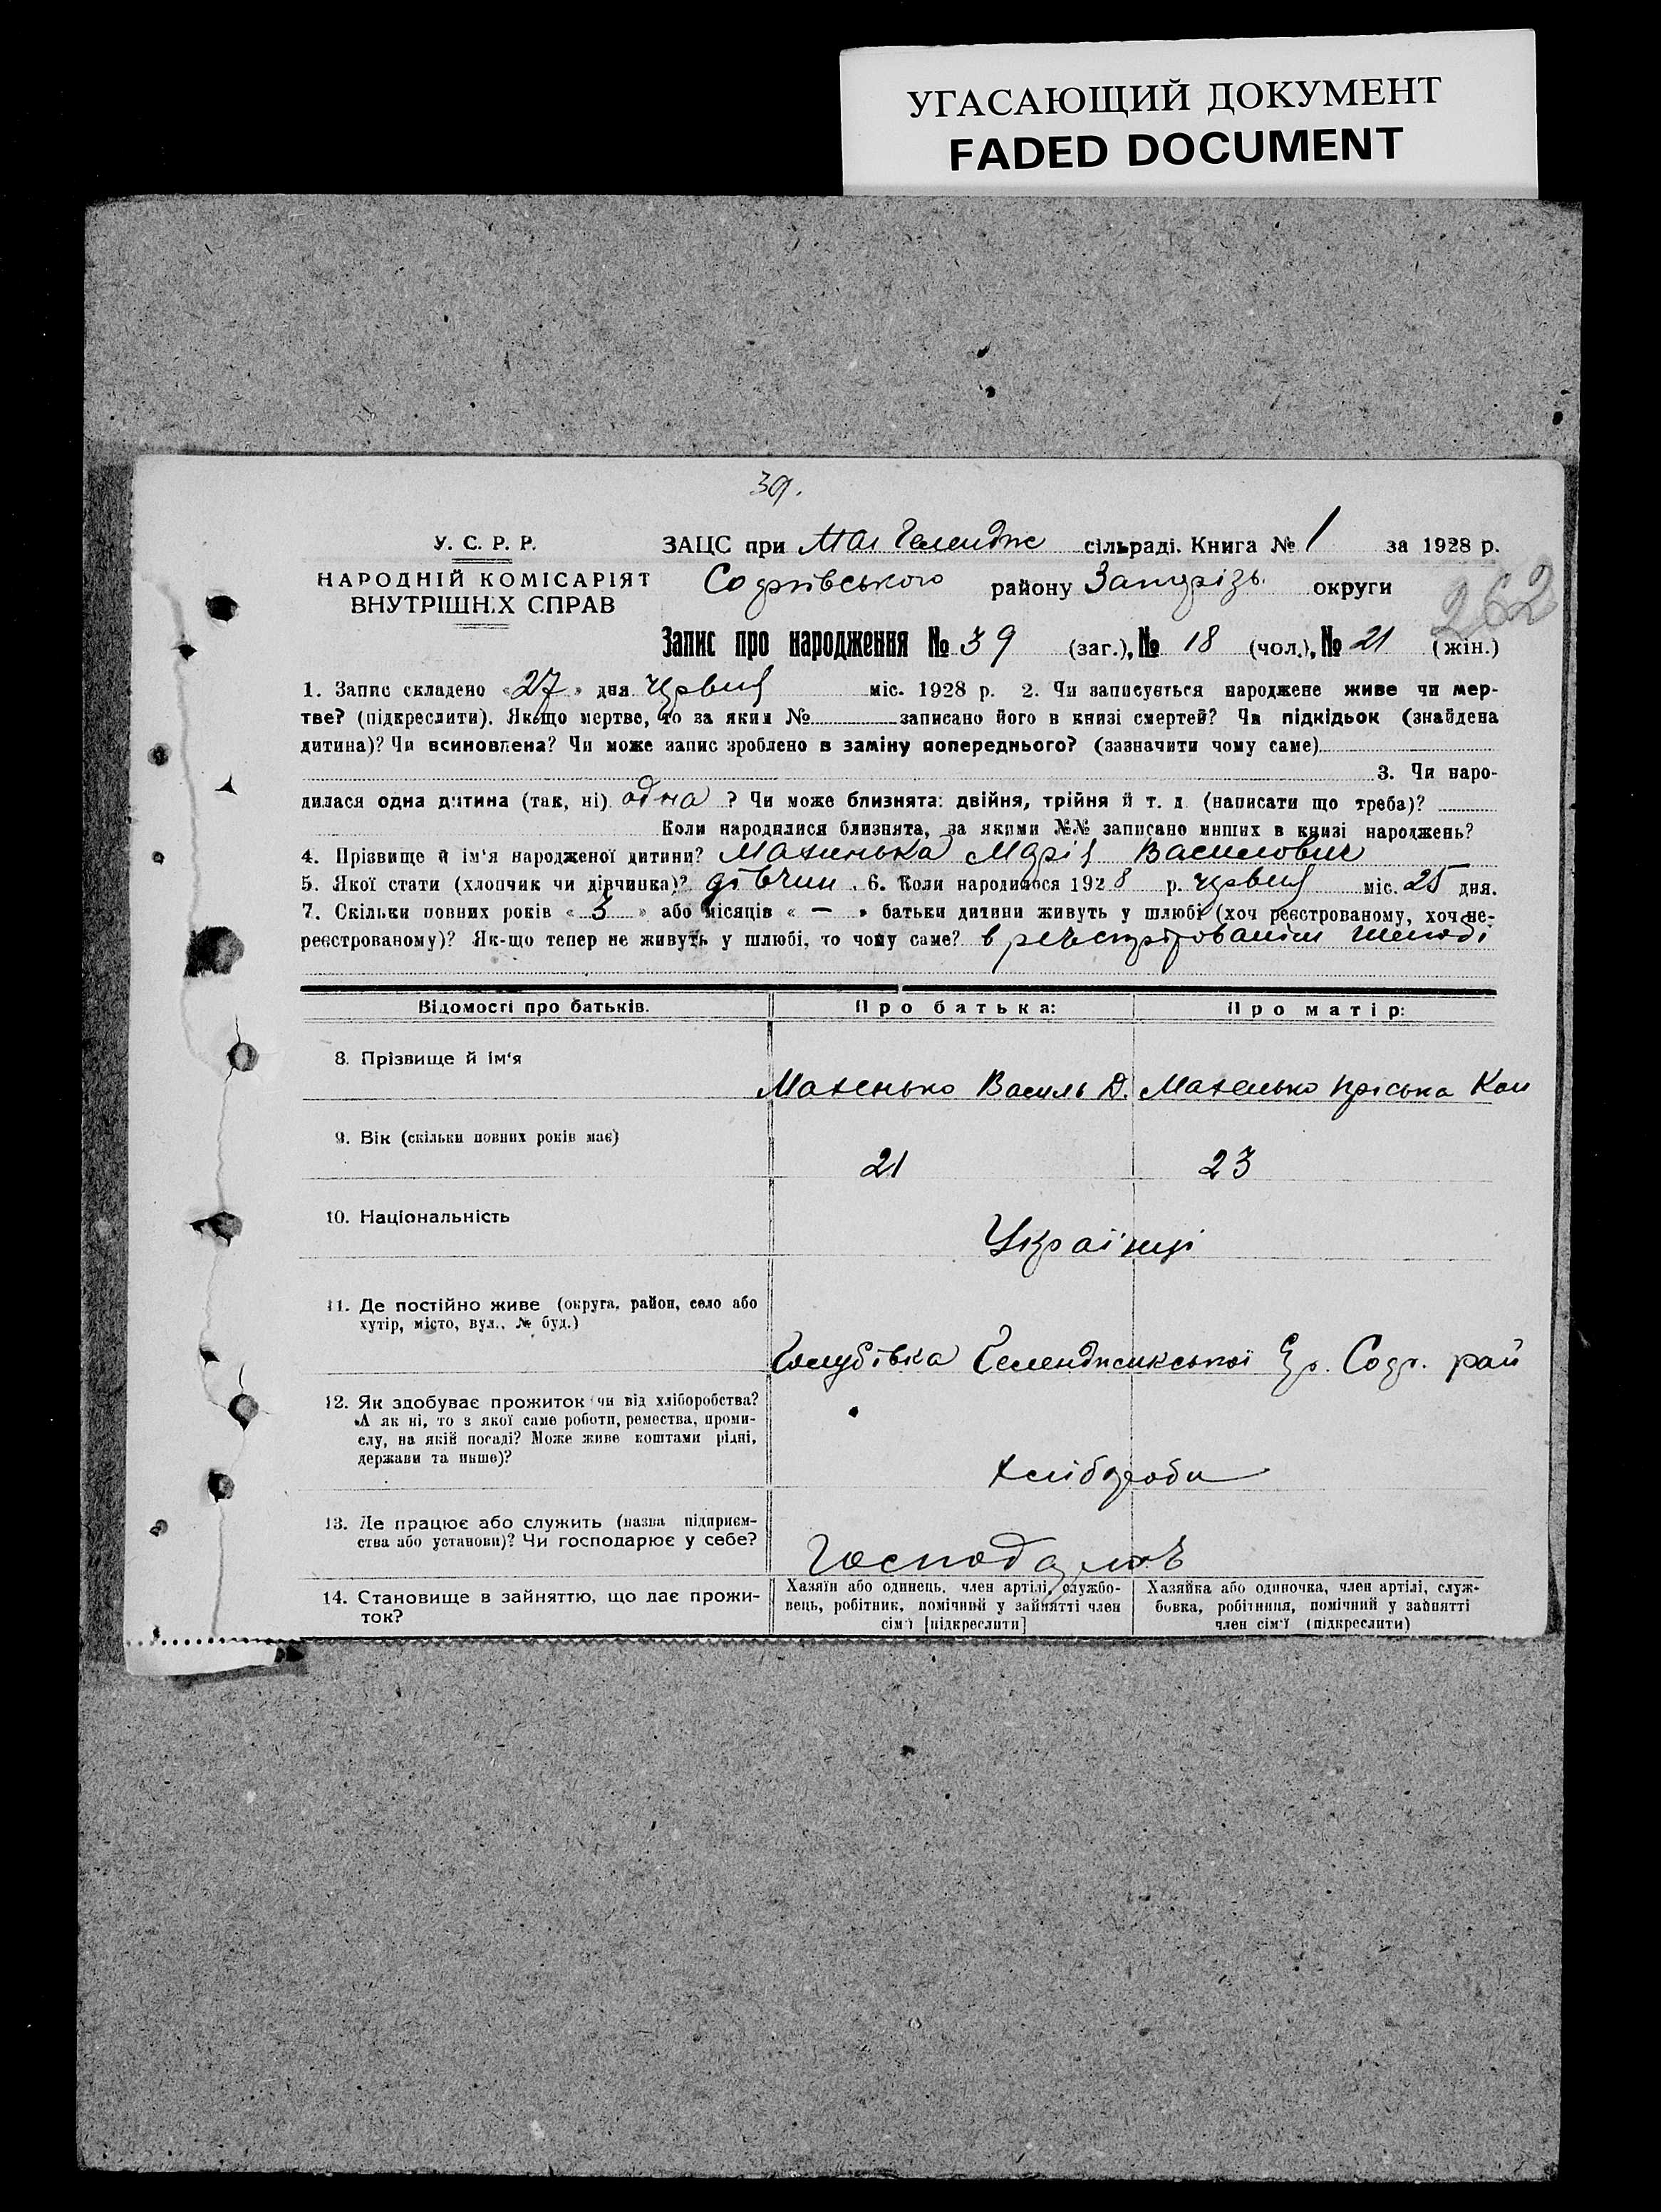 УГАСАЮЩИЙ ДОКУМЕНТ
FADED DOCUMENT
39.
У. С. Р. Р.
НАРОДНІЙ КОМІСАРІЯТ
ВНУТРІШНІХ СПРАВ
ЗАЦС при Мал Геленджс сільраді. Книга № 1 за 1928 р.
Софіївського району Запоріз. округи
262
Запис про народження № 39 (заг.), № 18 (чол.), № 21 (жін.)
1. Запис складено «27» дня червня міс. 1928 р. 2. Чи записується народжене живе чи мер-
тве? (підкреслити). Як-що мертве, то за яким № записано його в книзі смертей? Чи підкідьок (знайдена
дитина)? Чи всиновлена? Чи може запис зроблено в заміну попереднього? (зазначити чому саме)
3. Чи наро-
дилася одна дитина (так, ні) одна ? Чи може близнята: двійня, трійня й т. д. (написати що треба)?
Коли народилися близнята, за якими №№ записано инших в книзі народжень?
4. Прізвище й ім'я народженої дитини? Махинька Марія Василович
5. Якої стати (хлопчик чи дівчинка)? дівчин. 6. Коли народилося 1928 р. червня міс. 25 дня.
7. Скільки повних років « 3 » або місяців « — » батьки дитини живуть у шлюбі (хоч реєстрованому, хоч не-
реєстрованому)? Як-що тепер не живуть у шлюбі, то чому саме? в шлюбі
Відомості про батьків.
Про батька:
Про матір:
8. Прізвище й ім'я
Махенько Василь Д.
Махенько Пріська Кон
9. Вік (скільки повних років має)
21
23
10. Національність
Українці
11. Де постійно живе (округа, район, село або
хутір, місто, вул., № буд.)
Голубівка Соф. рай
12. Як здобуває прожиток чи від хліборобства?
А як ні, то з якої саме роботи, ремества, проми-
слу, на якій посаді? Може живе коштами рідні,
держави та инше)?
хлібороби
13. Де працює або служить (назва підприєм-
ства або установи)? Чи господарює у себе?
14. Становище в зайняттю, що дає прожи-
ток?
Хазяїн або одинець, член артілі, службо-
вець, робітник, помічний у зайнятті член
сім'ї [підкреслити]
Хазяйка або одиночка, член артілі, служ-
бовка, робітниця, помічний у зайнятті
член сім'ї (підкреслити)